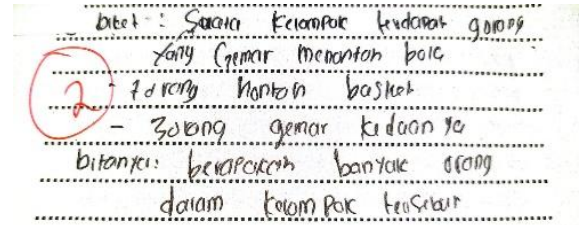 diket : Suatu Kelompok terdapat 9 orang
yang Gemar menonton bola
2 - 7 orang nonton basket
- 3 orang gemar keduanya
ditanya: berapakah banyak orang
dalam kelompok tersebut